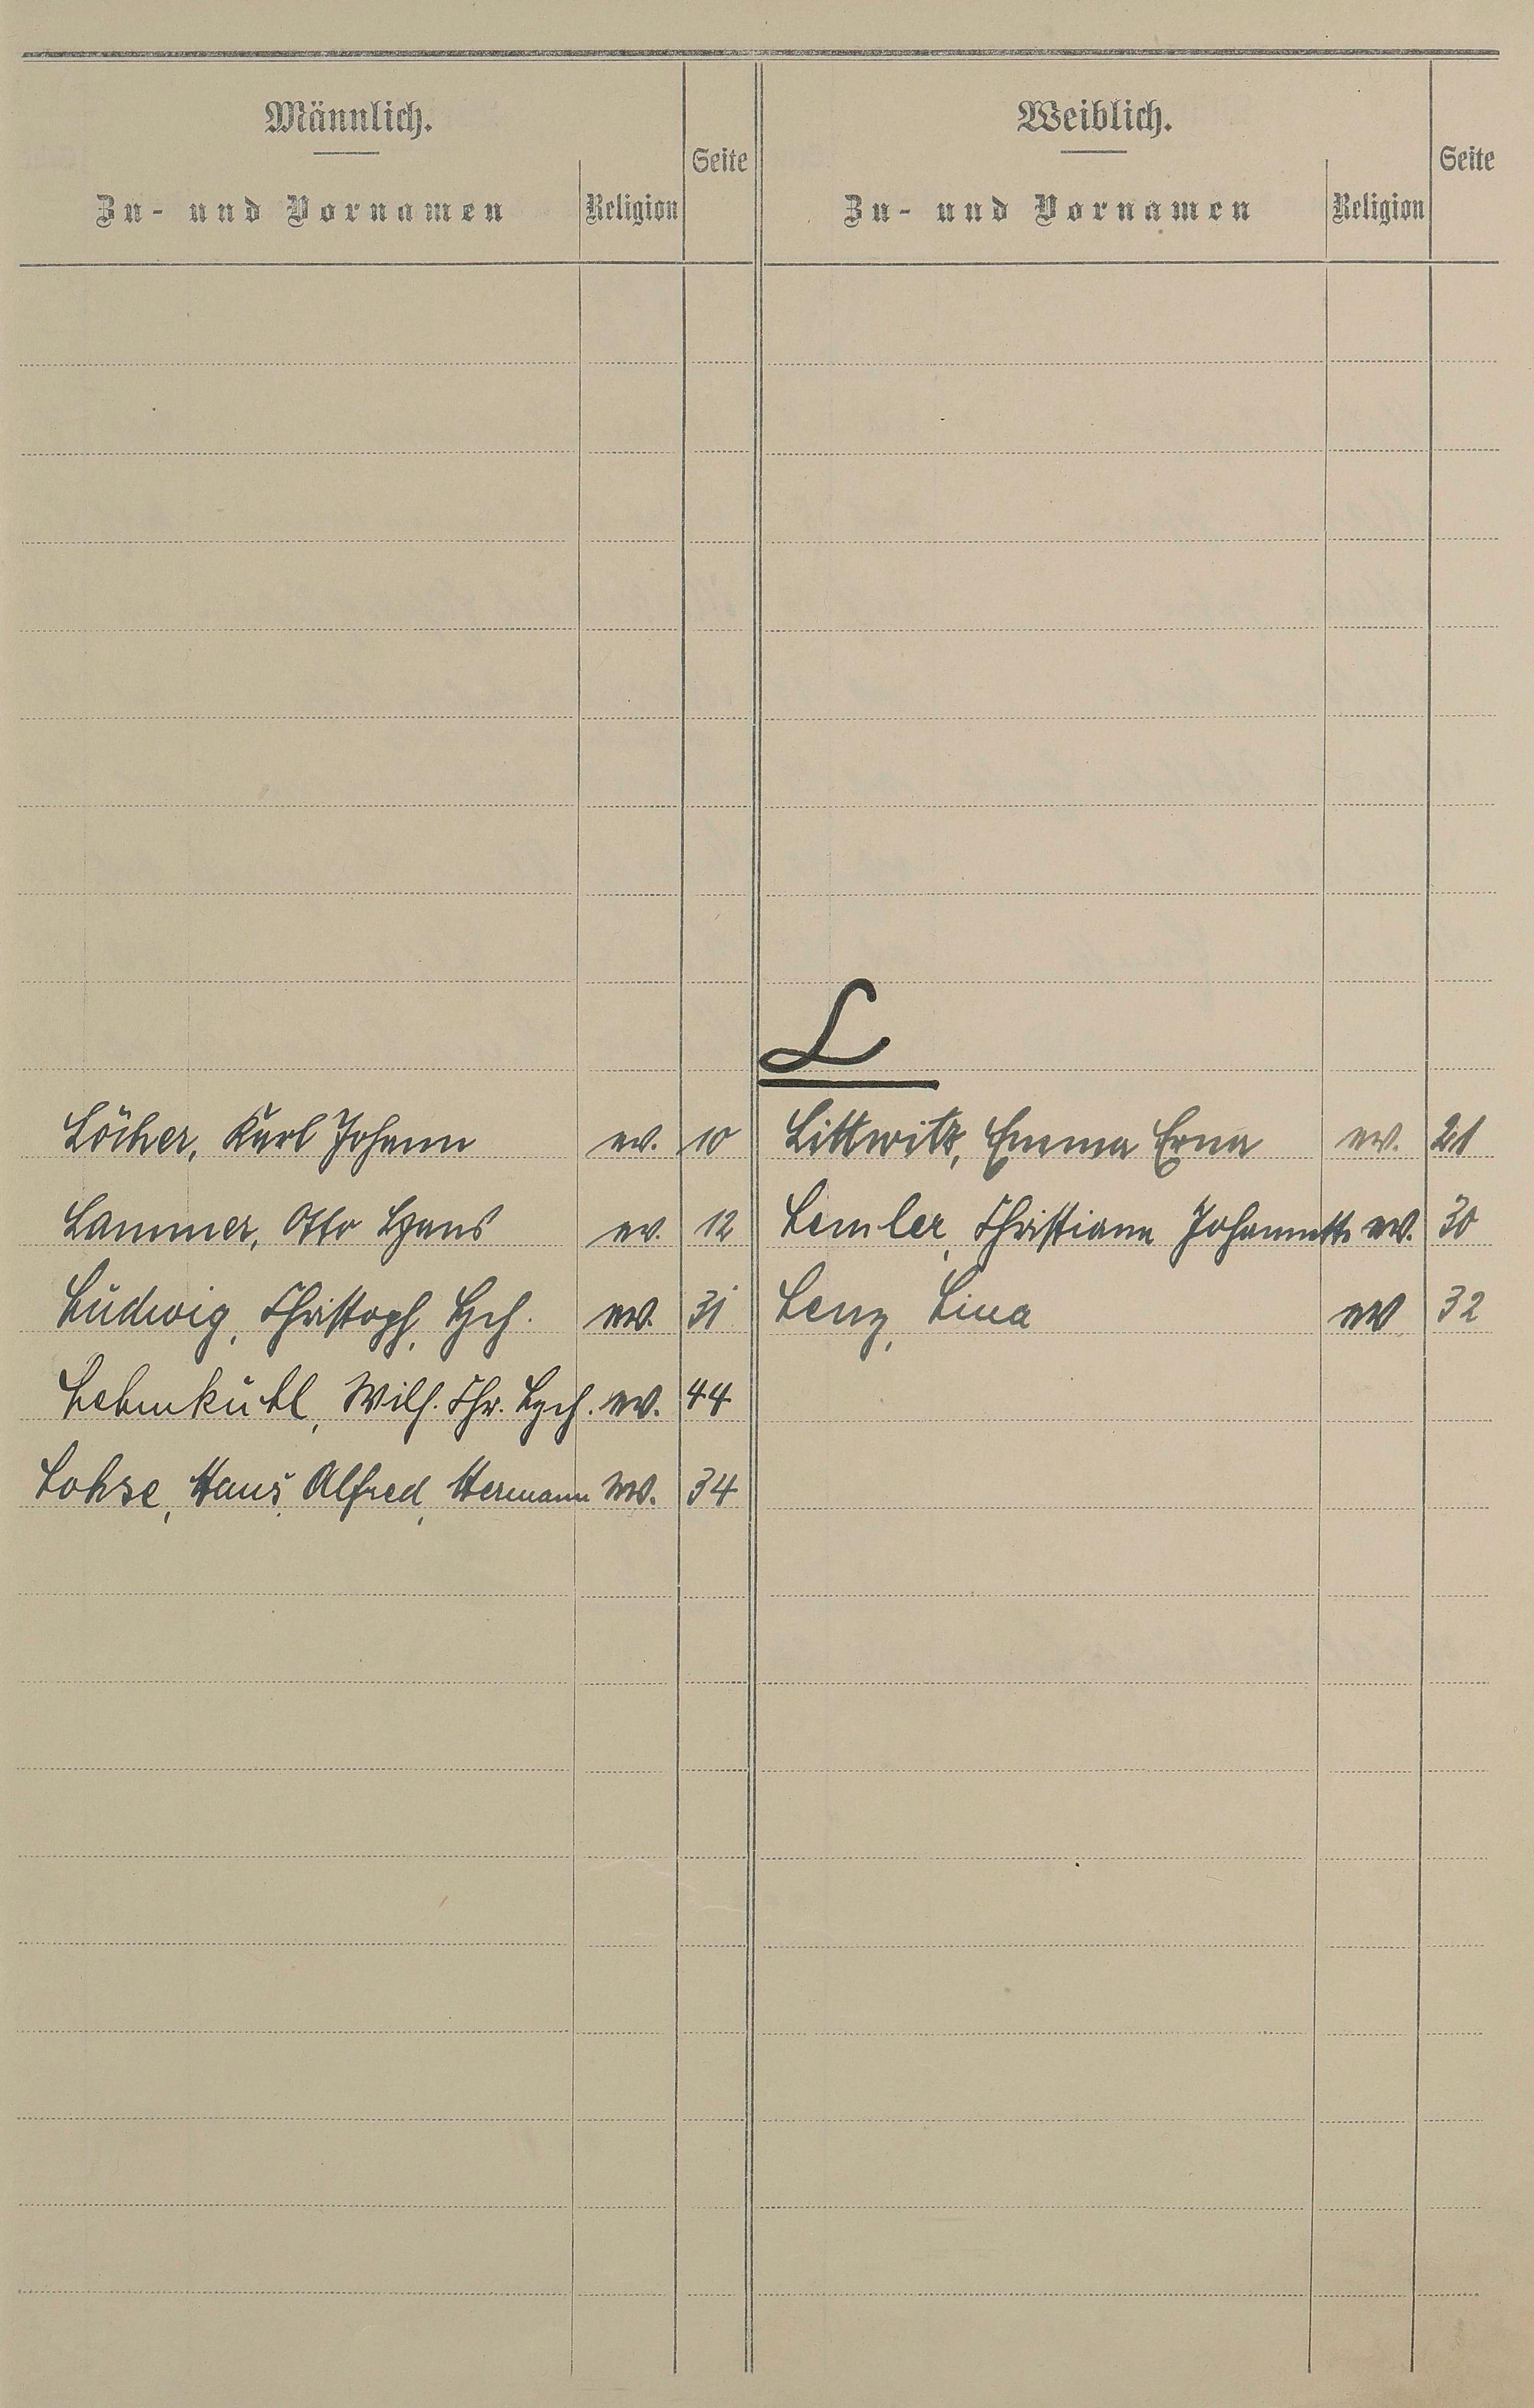 Männlich.
Zu- und Vornamen
Religion
Seite
Weiblich.
Zu- und Vornamen
Religion
Seite
L
Löcher, Karl Johann ev. 10
Lammer, Otto Hans ev. 12
Ludwig, Christoph, Hch. ev. 31
Lehmkuhl, Wilh. Chr. Hch. ev. 44
Lohse, Hans, Alfred, Hermann ev. 34
Littwitz, Emma Erna ev. 21
Lemler, Christiane Johannette ev. 30
Lenz, Lina ev 32